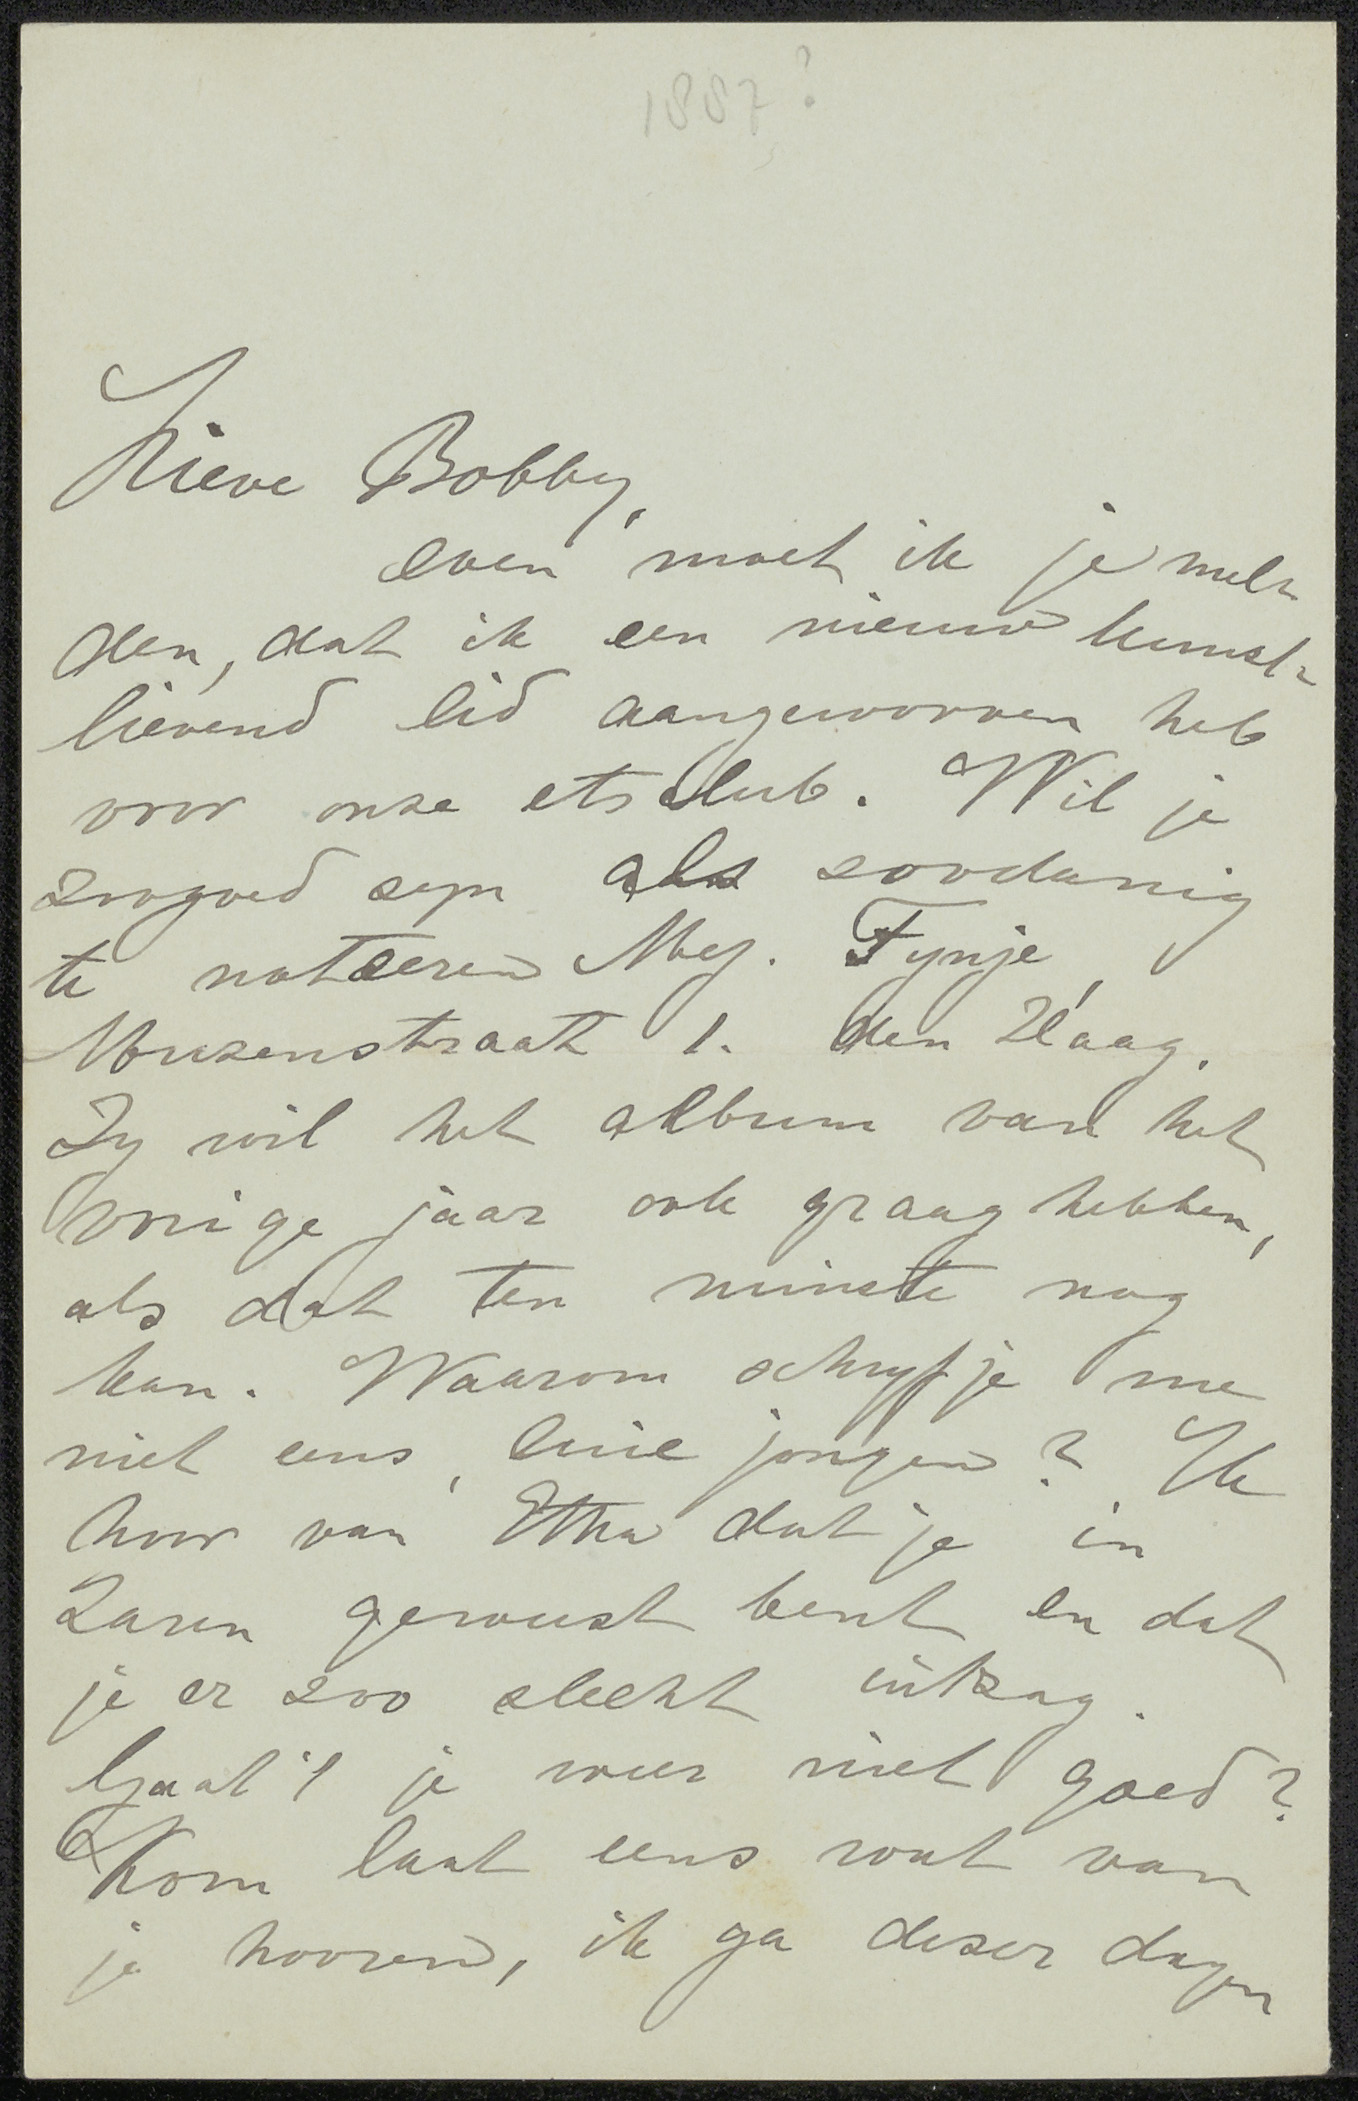 1887?
Lieve Bobby,
even moet ik je mel-
den, dat ik een nieuw kunst-
lievend lid aangeworven heb
voor onze etsclub. Wil je
zoogoed zyn als zoodanig
te noteeren Mej. Fynje,
Muzenstraat 1. den Haag.
Zy wil het album van het
vorige jaar ook graag hebben,
als dat ten minste nog
kan. Waarom schryf je me
niet eens, luie jongen? Ik
hoor van Etha dat je in
Laren geweest bent en dat
je er zoo slecht uitzag.
Gaat 't je weer niet goed?
Kom laat eens wat van
je hooren, ik ga dezer dagen